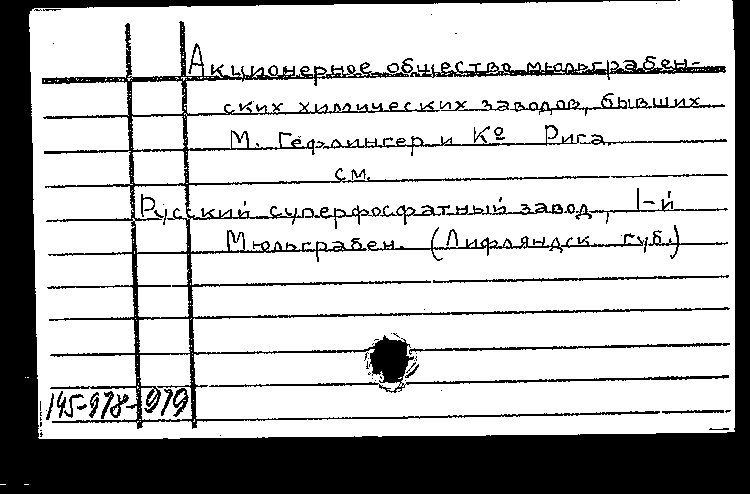 Акционерное общество мюльграбен-
ских химических заводов, бывших
М. Гефлингер и Кº Рига
см.
Русский суперфосфатный завод, 1-й
Мюльграбен. (Лифляндск губ.)
145-978-979